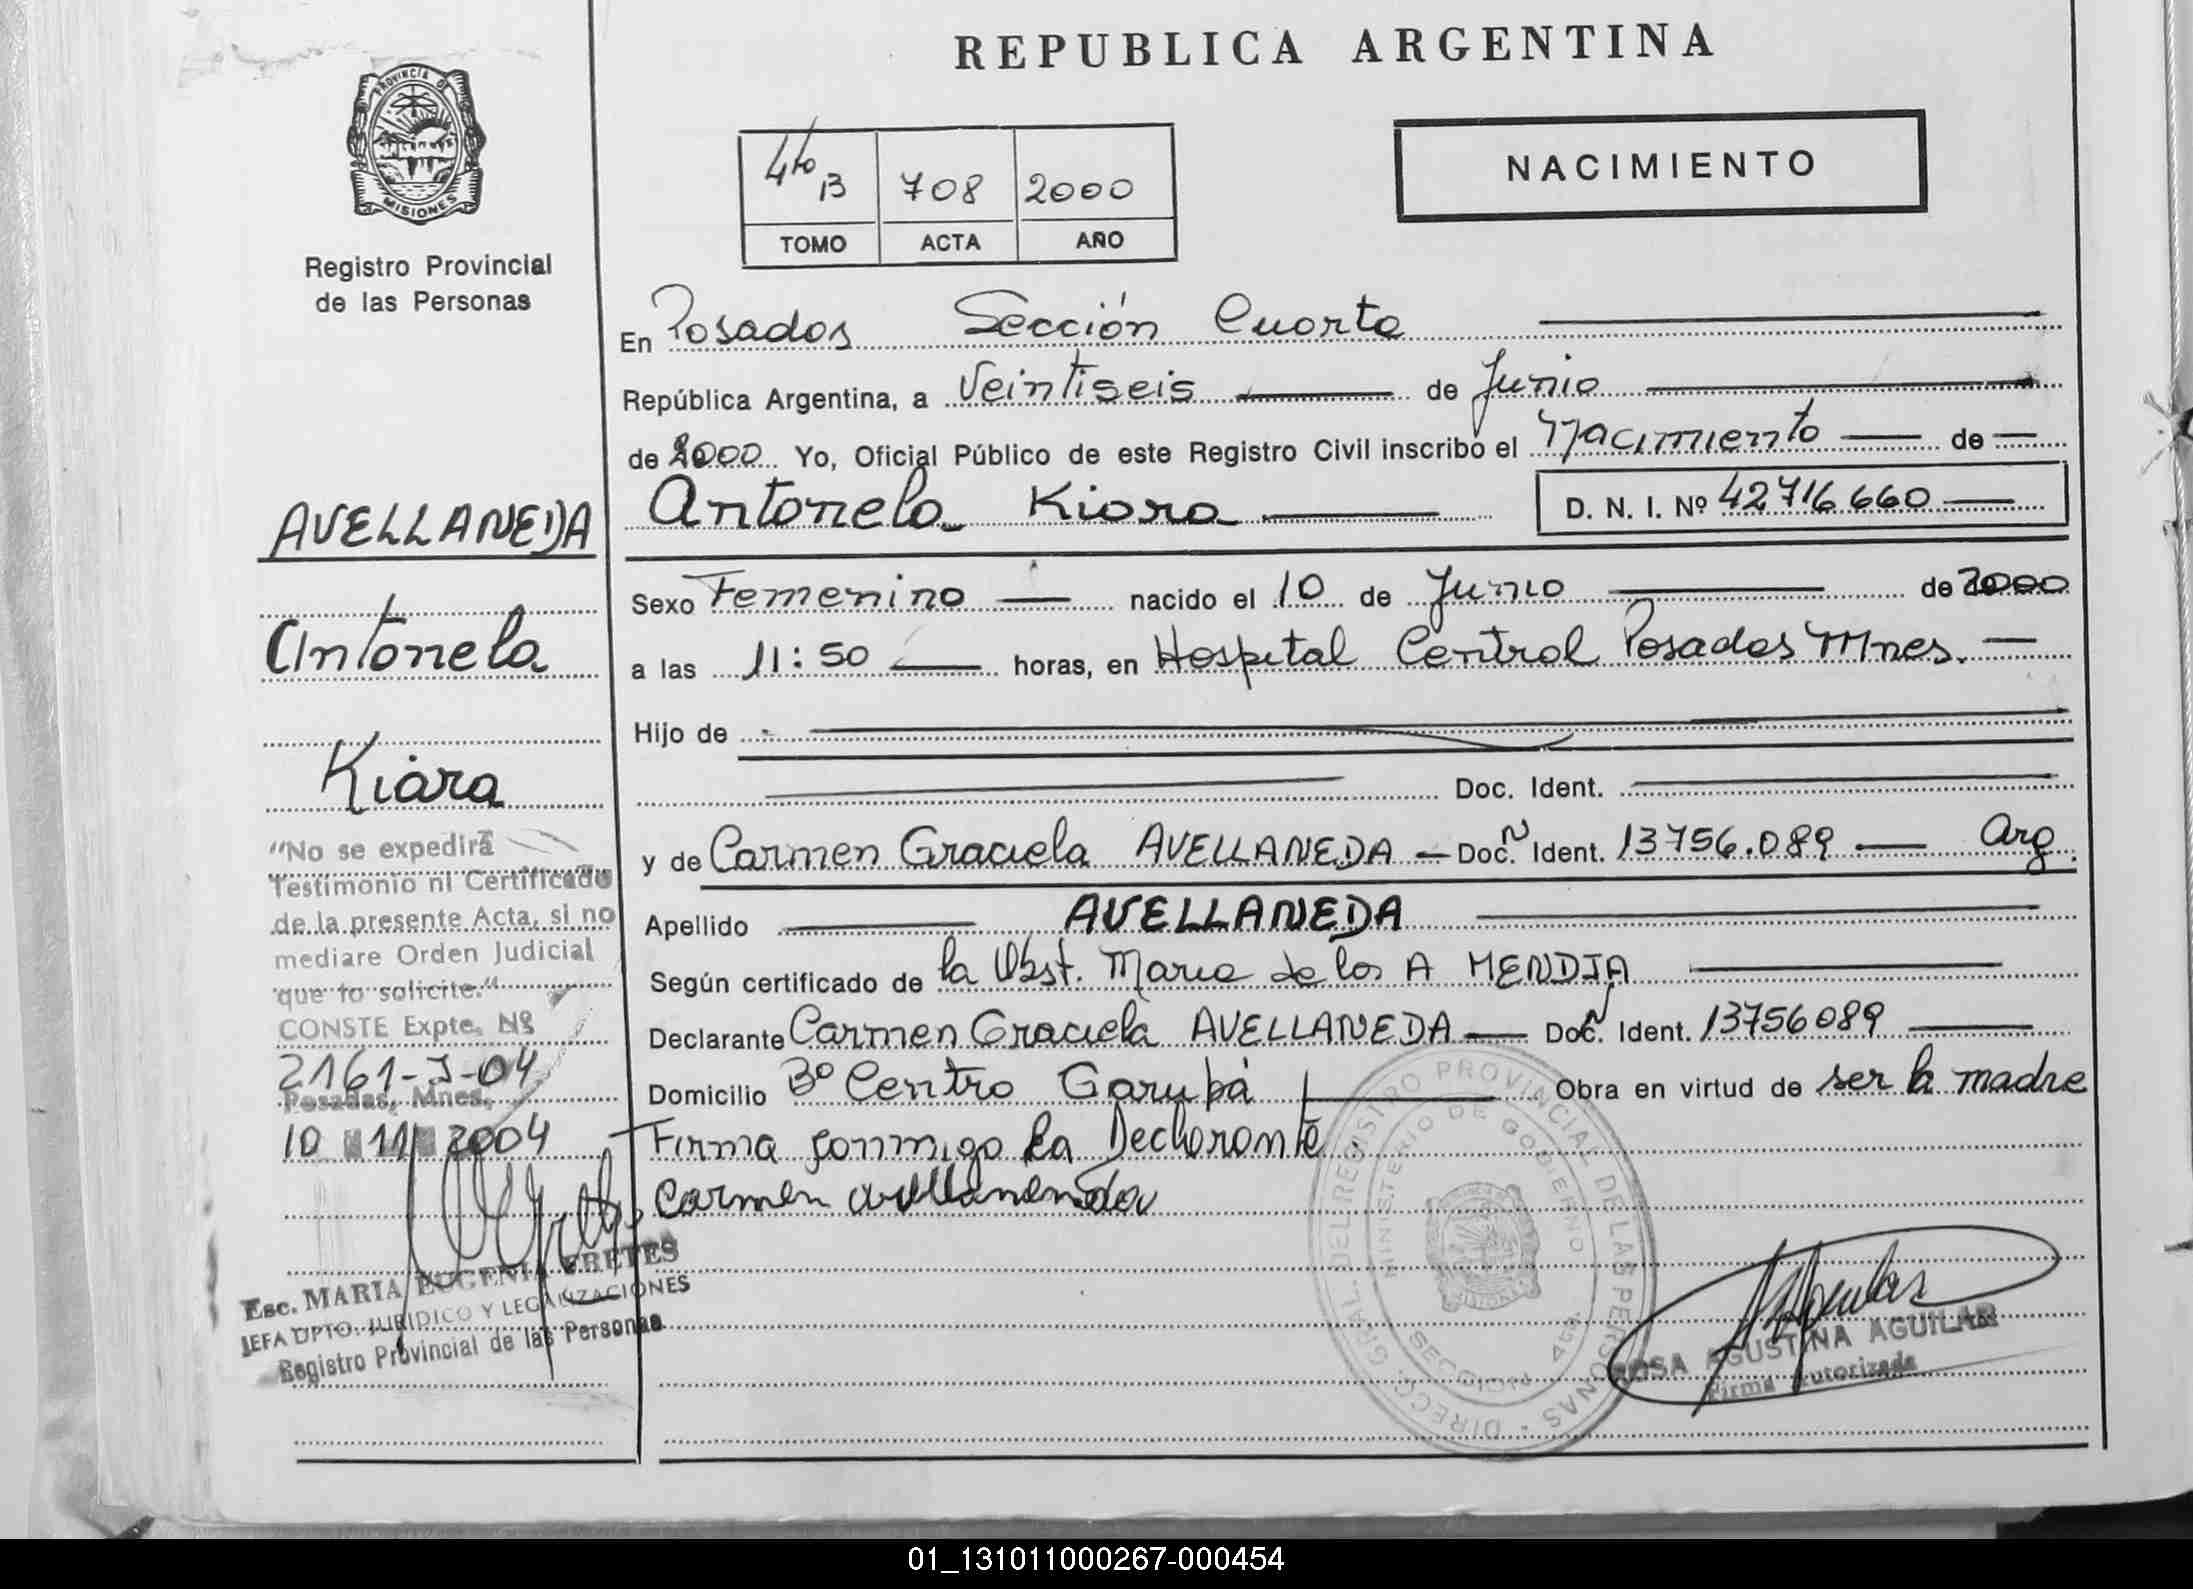 REPUBLICA ARGENTINA
PROVINCIA DE
MISIONES
Registro Provincial
de las Personas
4to B 708 2000
TOMO ACTA AÑO
NACIMIENTO
En Posadas Sección Cuarta
República Argentina, a Veintiseis de Junio
de 2000 Yo, Oficial Público de este Registro Civil inscribo el Nacimiento de
Antonela Kiara D. N. I. Nº 42716.660
Sexo Femenino nacido el 10 de Junio de 2000
a las 11:50 horas, en Hospital Central Posadas Mnes.
Hijo de
Doc. Ident.
y de Carmen Graciela AVELLANEDA Doc. N Ident. 13756.089 Arg.
Apellido AVELLANEDA
Según certificado de la Obst. Maria de los A MENDIA
Declarante Carmen Graciela AVELLANEDA Doc. N Ident. 13756089
Domicilio Bº Centro Garupá Obra en virtud de ser la madre
Firma conmigo la Declarante.
Carmen avellanenda
AVELLANEDA
Antonela
Kiara
"No se expedirá
Testimonio ni Certificado
de la presente Acta, si no
mediare Orden Judicial
que lo solicite."
CONSTE Expte. Nº
2161-J-04
Posadas, Mnes.
10 11 2004
Esc. MARIA EUGENIA FRETES
JEFA DPTO. JURIDICO Y LEGALIZACIONES
Registro Provincial de las Personas
DIRECC. GRAL. DEL REGISTRO PROVINCIAL DE LAS PERSONAS
MINISTERIO DE GOBIERNO
SECCION 4ta.
ROSA AGUSTINA AGUILAR
Firma Autorizada
01_131011000267-000454